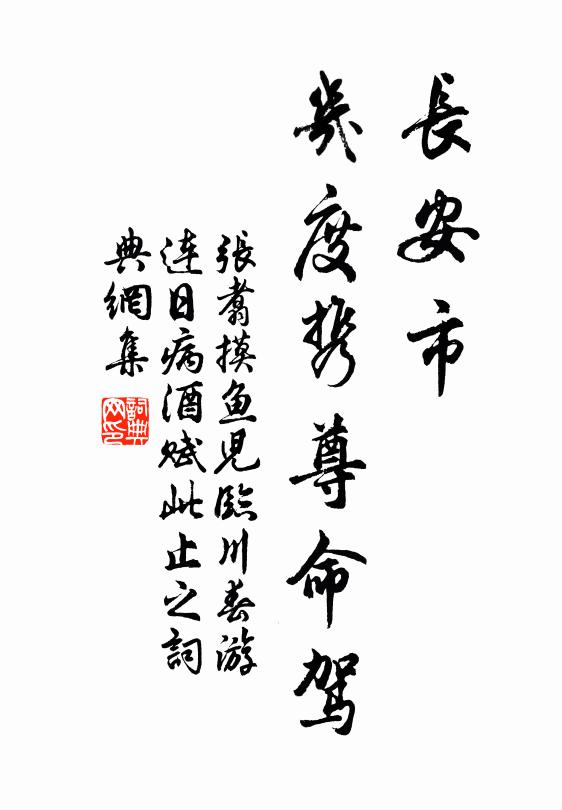 長安市
幾度携尊命駕
張翥摸鱼児臨川春游
連日病酒赋此止之詞
典網集
詞典
网印